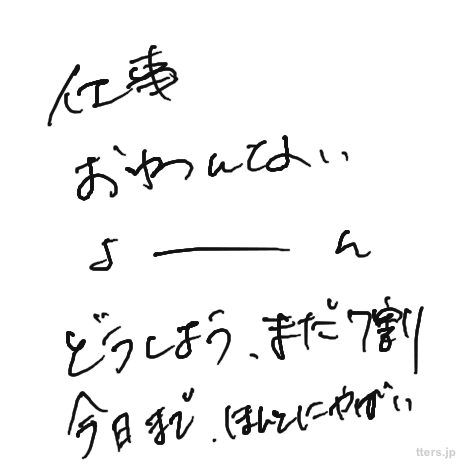 仕事
おわんてない
よーーーん
どうしよう、まだ7割
今日まで、ほんとにやばい
tters.jp